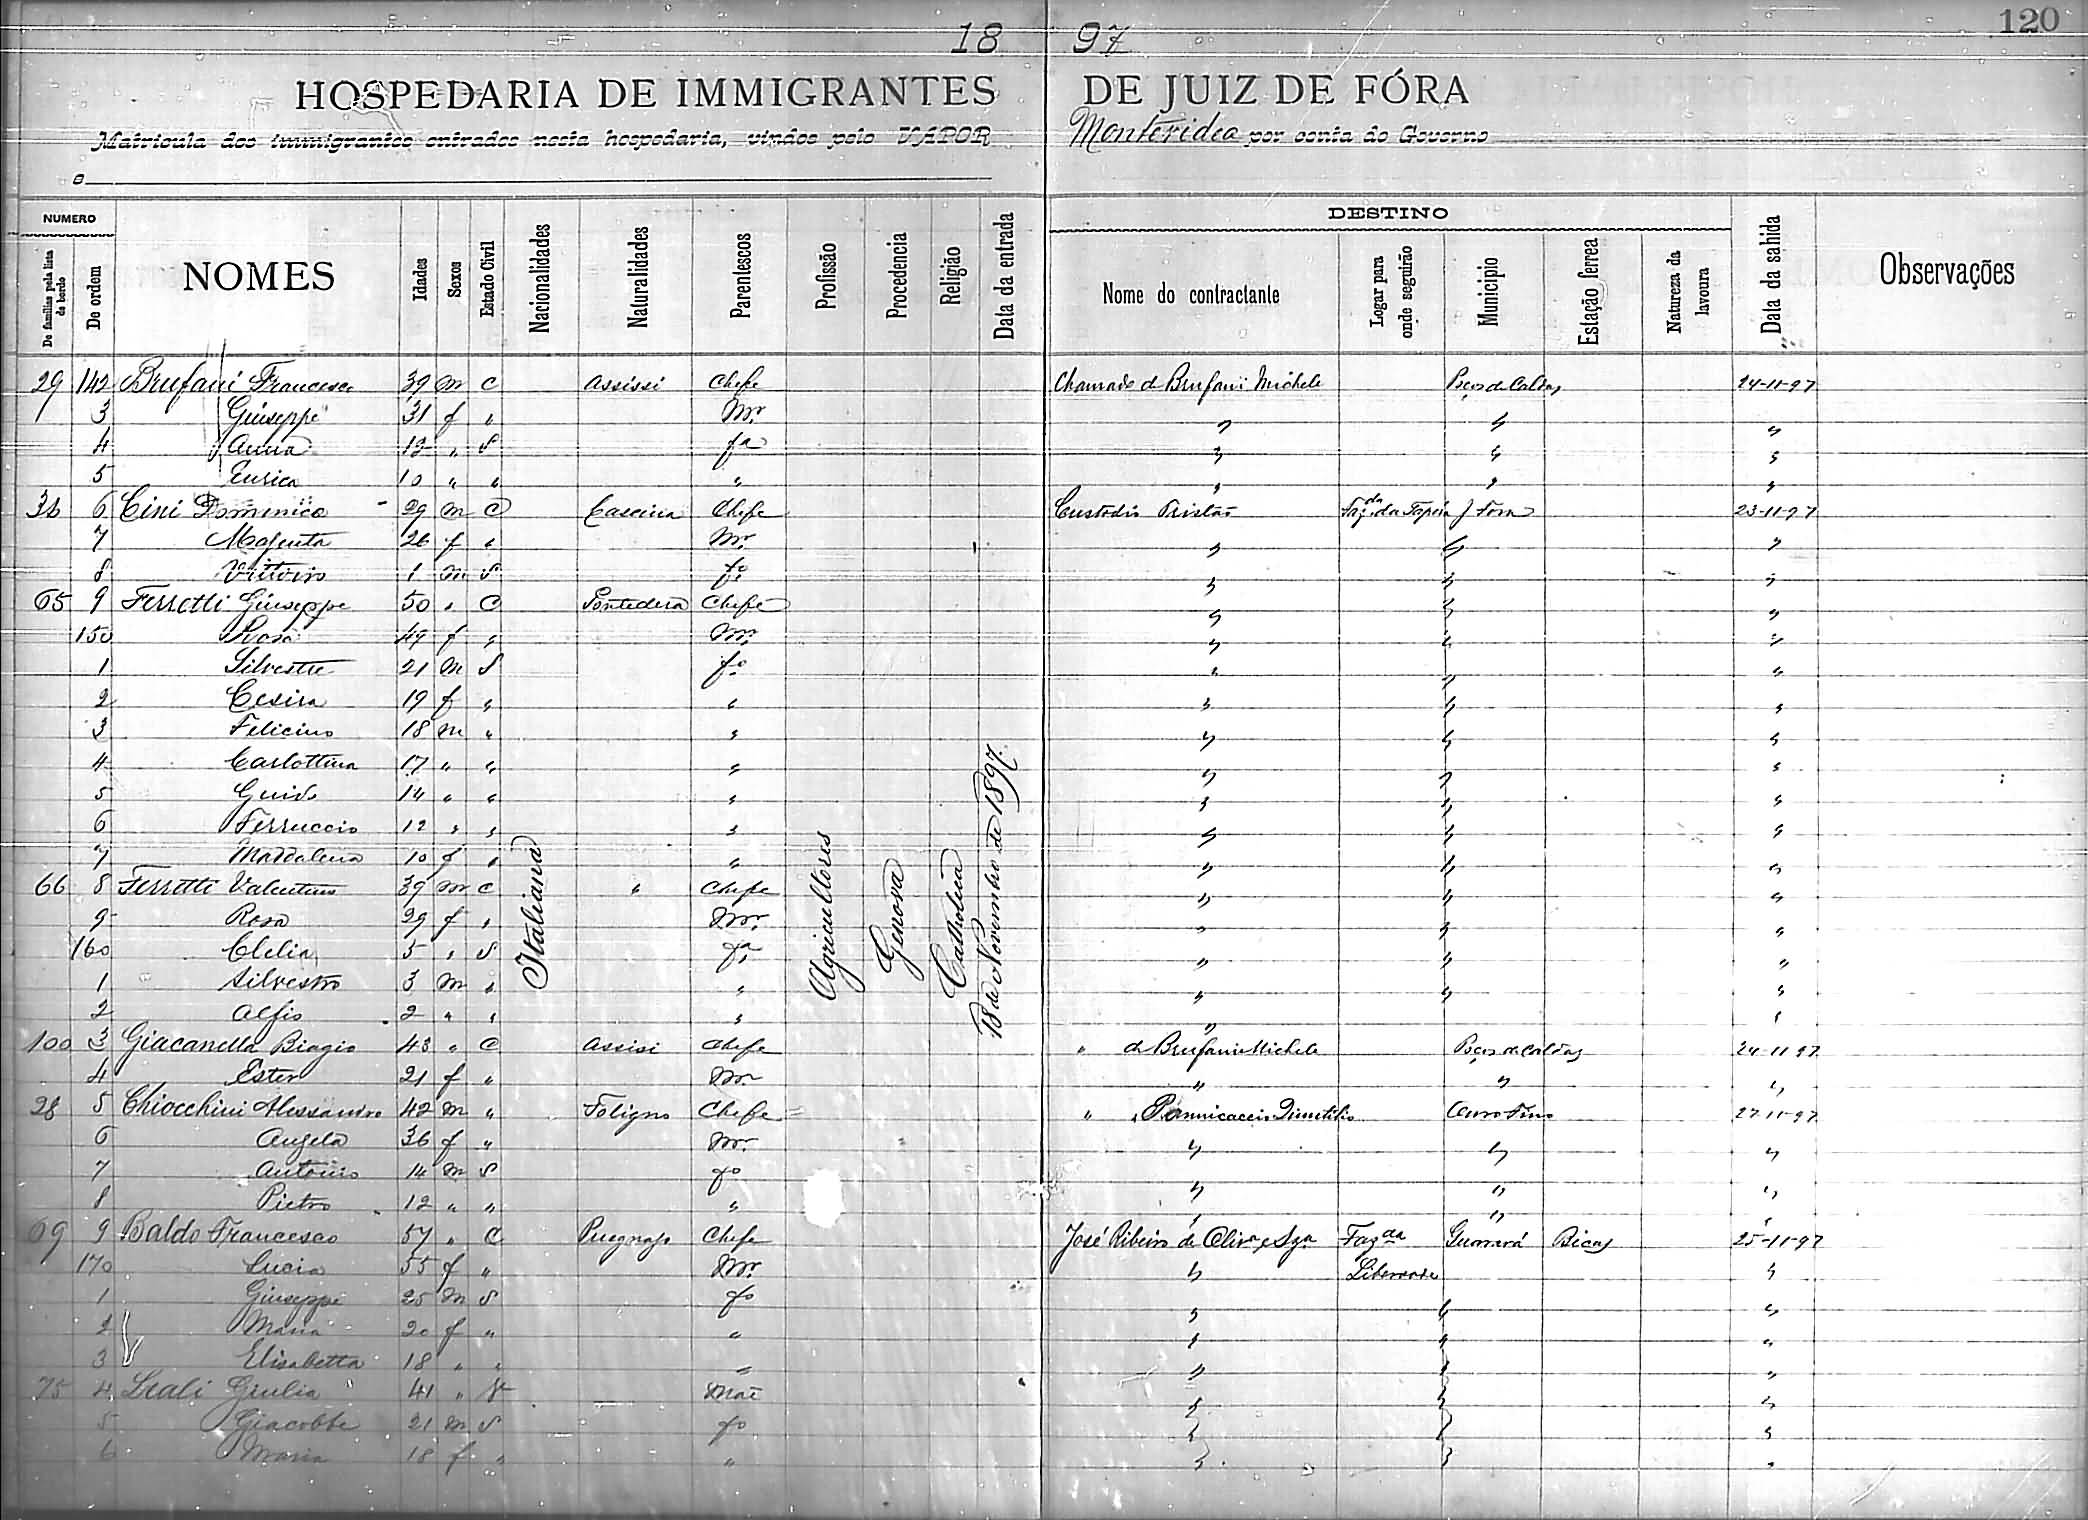 120
18 97
HOSPEDARIA DE IMMIGRANTES DE JUIZ DE FÓRA
Matricula dos immigrantes entrados nesta hospedaria, vindos pelo VAPOR Montevidea por conta do Governo
o
NUMERO
De familias pela lista de bordo
De ordem
NOMES
Idades
Sexos
Estado Civil
Nacionalidades
Naturalidades
Parentescos
Profissão
Procedencia
Religião
Data da entrada
DESTINO
Nome do contractante
Logar para onde seguirão
Municipio
Estação ferrea
Natureza da lavoura
Data da sahida
Observações
29 142 Brufani Francesco 39 m C Assissi Chefe Chamado d Brufani Michele Poços de Caldas 24-11-97
3 Giuseppe 31 f " Mr. " " "
4 Anna 12 " S fa " " "
5 Enrica 10 " " " " " "
36 6 Cini Domenico 29 m C Cascina Chefe Custodio Tristão Fazda da Tapera J Fora 23-11-97
7 Magenta 26 f " Mr. " " "
8 Vittorio 1 m S fo " " "
65 9 Ferretti Giuseppe 50 " C Pontedera Chefe " " "
150 Rosa 49 f " Mr. " " "
1 Silvestre 21 m S fo " " "
2 Cesira 19 f " " " " "
3 Felicino 18 m " " " " "
4 Carlottina 17 " " " " " "
5 Guido 14 " " " " " "
6 Ferruccio 12 " " " " " "
7 Maddalena 10 f " " " " "
66 8 Ferretti Valentino 39 m C " Chefe " " "
9 Rosa 29 f " Mr. " " "
160 Clelia 5 " S fa " " "
1 Silvestro 3 m " " " " "
2 Alfio 2 " " " " "
100 3 Giacanella Biagio 43 " C Assisi Chefe " de Brufani Michele Poços de Caldas 24-11-97
4 Ester 21 f " Mr " " "
28 5 Chiocchini Alessandro 42 m " Foligno Chefe " Ouro Fino 27-11-97
6 Angela 36 f " Mr. " " "
7 Antonio 14 m S fo " " "
8 Pietro 12 " " " " " "
69 9 Baldo Francesco 57 " C Chefe José Ribeiro de Oliva e Sza Fazda Guarará Bicas 25-11-97
170 Lucia 55 f " Mr. " Liberdade "
1 Giuseppe 25 m S fo " " "
2 Maria 20 f " " " " "
3 Elisabetta 18 " " " " " "
75 4 Leali Giulia 41 " V Mãe " " "
5 Giacobbe 21 m S fo " " "
6 Maria 18 f " " " " "
Italiana
Agricultores
Genova
Catholica
18 de Novembro de 1897